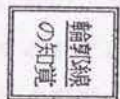 輪郭線
の知覚